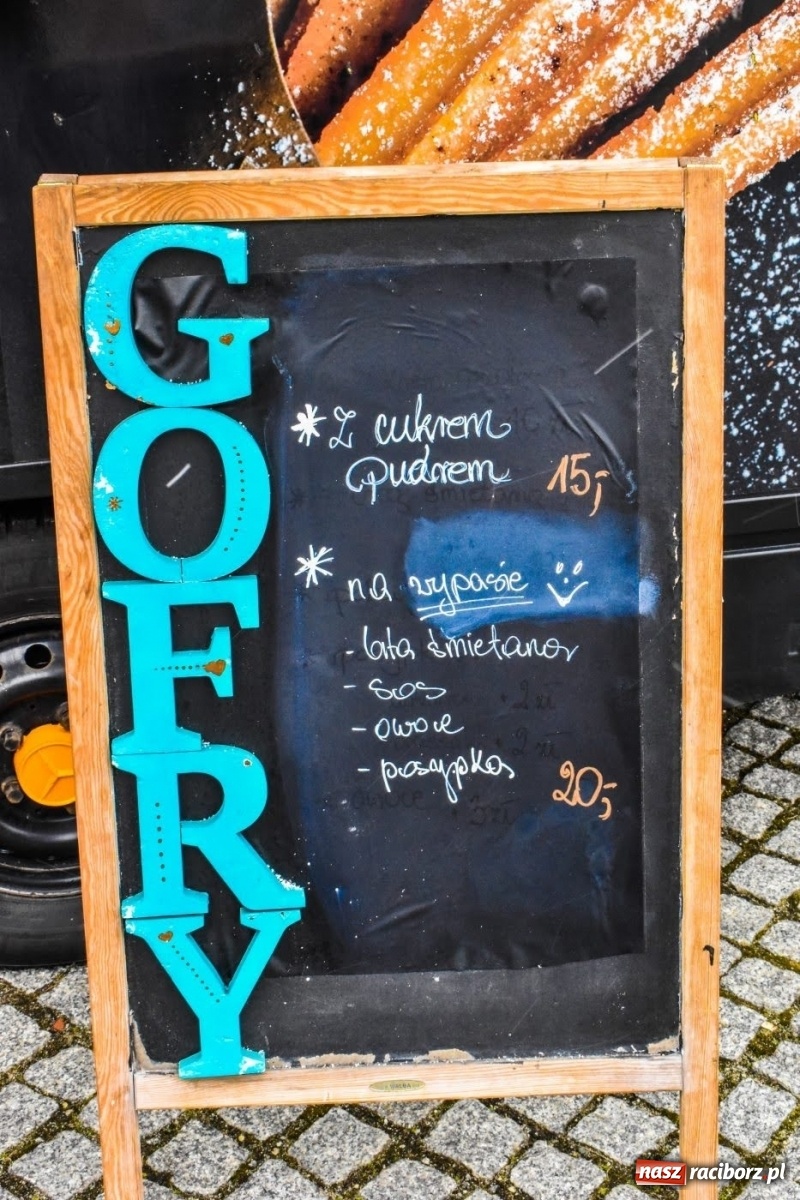 GOFRY
* Z cukrem
pudrem 15,-
* na wypasie
- bita śmietana
- sos
- owoce
- posypka 20,-
nasz raciborz.pl